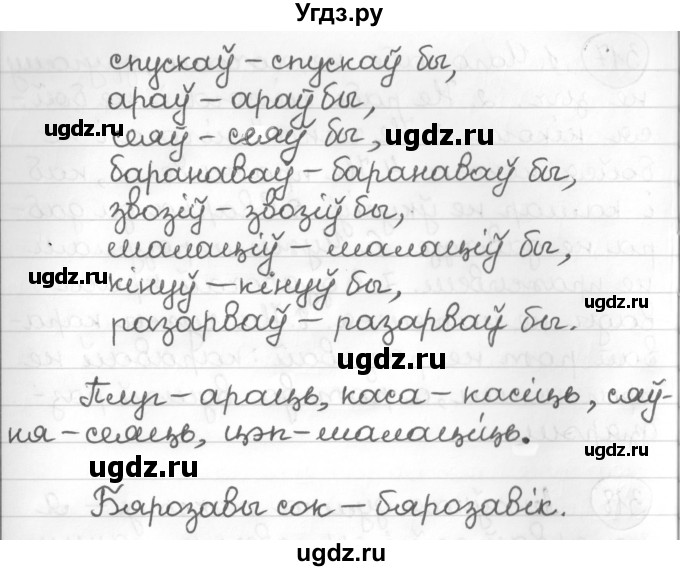 Угдз.ру
спускаў – спускаў бы,
араў – араў бы,
ugdz.ru
сеяў – сеяў бы,
ugdz.ru
баранаваў – баранаваў бы,
звозіў – звозіў бы,
малаціў – малаціў бы,
ugdz.ru
кінуў – кінуў бы,
ugdz.ru
разарваў – разарваў бы.
ugdz.ru
Плуг – араць, каса – касіць, сяў-
ня – сеяць, цэп – малаціць.
ugdz.ru
Бярозавы сок – бярозавік.
ugdz.ru